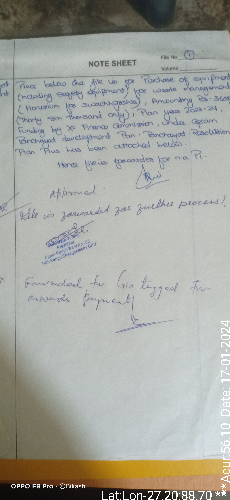 File No. 1
NOTE SHEET
Volume
Plans below the file is for Purchase of equipment
(including safety equipment) for waste management
(Honorium for swachhagrahi), Amounting Rs-36000
(Thirty six thousand only), Plan year 2023-24,
Funding by XV Finance Commission, under Gram
Panchayat development Plan. Panchayat Resolution
Plan Plus has been attached below.
Hence file is forwarded for n.a Pl.
Approved
File is forwarded for further process!
Forwarded for Geo tagged for
onwards payment
OPPO F8 Pro · ©Bikash
Lat:Lon-27.20:88.70 ** Acur:56.10 Date 17-01-2024